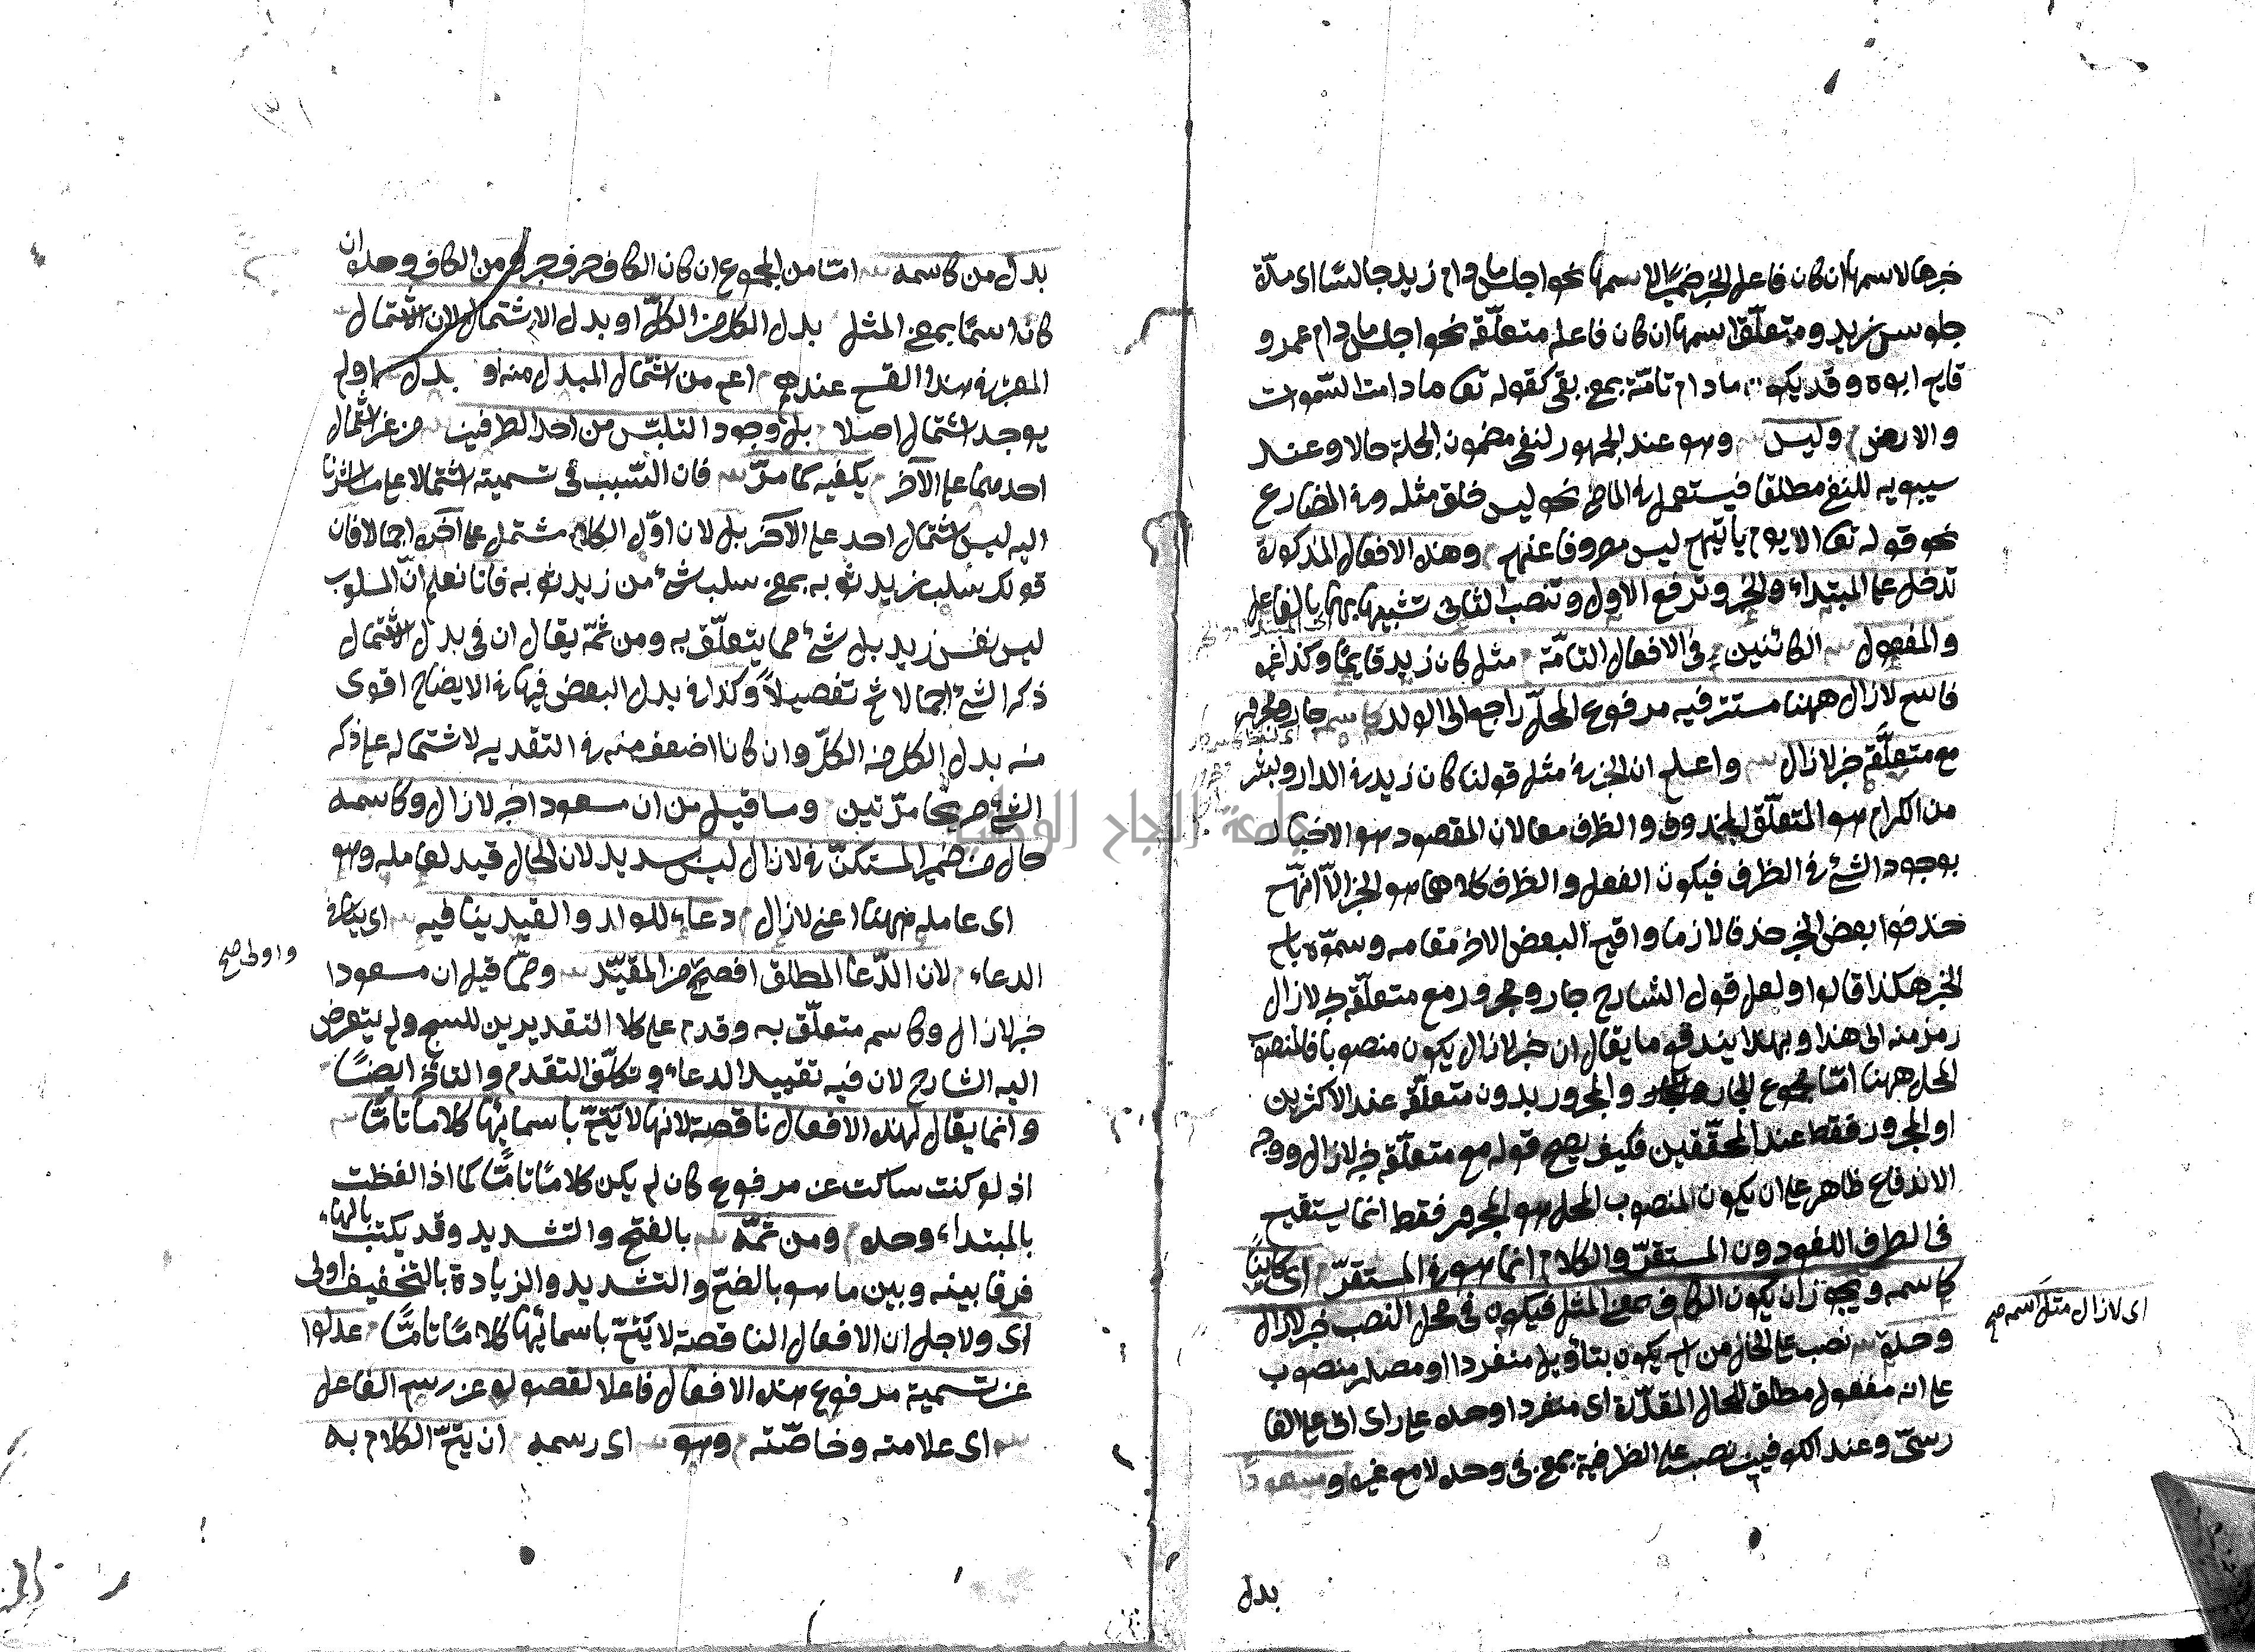 خبرها لاسمها ان كان فاعل الخبر ضميرا لاسمها نحو اجلس مادام زيد جالسا اى مدّة
جلوس زيد ومتعلّق اسمها ان كان فاعله متعلّقه نحو اجلس مادام عمرو
قايم ابوه وقد يكون مادام تامّة بمعنى بقى كقوله تعا مادامت السّموات
والارض وليس وهو عند الجمهور لنفى مضمون الجملة حالا وعند
سيبويه للنفى مطلقا فيستعمل فى الماضى نحو ليس خلق مثله وفى المضارع
نحو قوله تعا الا يوم ياتيهم ليس مصروفا عنهم وهذه الافعال المذكورة
تدخل على المبتداء والخبر وترفع الاول وتنصب الثانى تشبيها بهما بالفاعل
والمفعول الكائنين فى الافعال التامّة مثل كان زيد قايمًا وكذا غيره
فاسم لازال ههنا مستتر فيه مرفوع المحلّ راجع الى الولد كاسمه جار ومجرور
مع متعلَّقه خبر لازال واعلم ان الخبر فى مثل قولنا كان زيد فى الدار وبشر
من الكرام هو المتعلّق المحذوف والظرف معا لان المقصود هو الاخبار
بوجود الشئ فى الظرف فيكون الفعل والظرف كلاهما هو الخبر الّا انهّم
حذفوا بعض الخبر حذفا لازما واقيم البعض الاخر مقامه وسموّه باسم
الخبر هكذا قالوا ولعل قول الشارح جار ومجرور مع متعلّقه خبر لازال
رمز منه الى هذا وبهذا يندفع ما يقال ان خبر لازال يكون منصوبا فالمنصوب
المحل ههنا امّا مجموع الجار والمجرور بدون متعلّقه عند الاكثرين
او المجرور فقط عند المحقّقين فكيف يصح قوله مع متعلّقه خبر لازال ووجه
الاندفاع ظاهر على ان يكون المنصوب المحل هو المجرور فقط انما يستقيم
فى الظرف اللغو دون المستقرّ والكلام انما هو فى المستقرّ اى كاينًا
كاسمه ويجوز ان يكون الكاف بمعنى المثل فيكون فى محل النصب خبر لازال
اى لازال مثل اسمه صح
وحده نصب على الحال من اسم يكون بتاويل منفردا او مصدر منصوب
على انه مفعول مطلق للحال المقدّرة اى منفردا وحده على راى ابى على الفا
رسىّ وعند الكوفيين نصب على الظرفية بمعنى فى وحده لا مع غيره ومسعودًا
بدل
بدل من كاسمه امّا من المجموع ان كان الكاف حرف جر او من الكاف وحده ان
كان اسمًا بمعنى المثل بدل الكل من الكلّ او بدل الاشتمال لان الاشتمال
المعتبر فى هذا القسم عندهم اعم من اشتمال المبدل منه او بدل او لم
يوجد اشتمال اصلا بل وجود التلبّس من احد الطرفين من غير اشتمال
احدهما على الآخر يكفيه كما مرّ فان السّبب فى تسميته اشتمالا على ما اشرنا
اليه ليس اشتمال احد على الآخر بل لان اوّل الكلام مشتمل على آخره اجمالا فان
قولك سلب زيد ثوبه بمعنى سلب شئ من زيد ثوبه فانا نعلم انّ المسلوب
ليس نفس زيد بل شئ مما يتعلّق به ومن ثمّة يقال ان فى بدل الاشتمال
ذكر الشئ اجمالا ثم تفصيلاً وكذا فى بدل البعض فيهما فى الايضاح اقوى
منه بدل الكل من الكلّ وان كانا اضعف منه فى التقديم لاشتماله على ذكر
الشئ صريحا مرّتين وما قيل من ان مسعودا خبر لازال وكاسمه
حال من ضمير المستكنّ فى لازال ليس بسديد لان الحال قيد لعامله وهو
اى عامله ههنا اعنى لازال دعاء للولد والقيد ينافيه اى ينافى
الدعاء لان الدّعا المطلق افصح من المقيّد وممّا قيل ان مسعودا
واولى صح
خبر لازال وكاسمه متعلّق به وقدم على كلا التقديرين للسجع ولم يتعرض
اليه الشارح لان فيه تقييد الدعاء وتكلّف التقدم والتاخر ايضًا
وانما يقال لهذه الافعال ناقصة لانها لا يَتِمّ باسمائها كلاما تامًّا
اذ لو كنت ساكت عن مرفوع كان لم يكن كلامًا تامًّا كما اذا لفظت
بالمبتداء وحده ومن ثمّه بالفتح والتشديد وقد يكتب بالهاء
فرقا بينه وبين ما هو بالضمّ والتشديد والزيادة بالتخفيف اولى
اى ولاجل ان الافعال الناقصة لا يَتِمّ باسمائها كلامًا تامًّا عدلوا
عن تسمية مرفوع هذه الافعال فاعلا لقصوره عن رسم الفاعل
اى علامته وخاصّته وهو اى رسمه ان يتمّ الكلام به
جامعة النجاح الوطنية